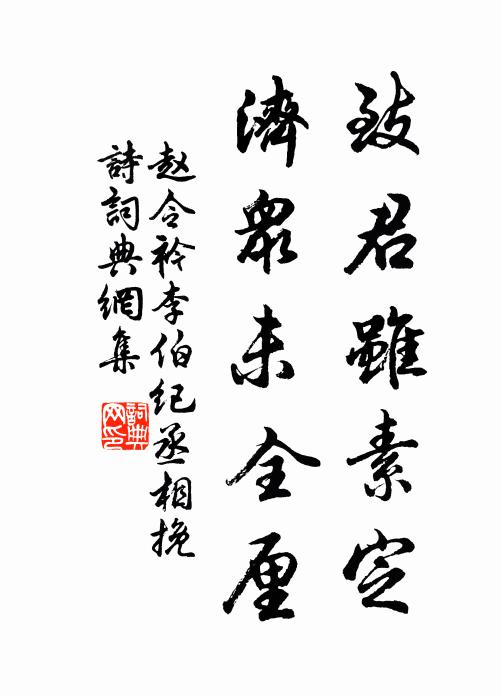 致君雖素定
濟眾未全厘
赵令衿李伯纪丞相挽
詩詞典網集
詞典网印